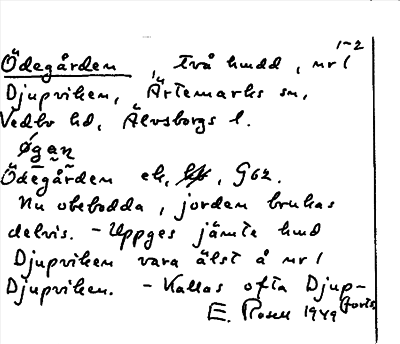 1-2
Ödegården, två hmdd, nr 1
Djupviken, Ärtemarks sn,
Vedbo hd, Älvsborgs l.
øgaṇ
Ödegården ek, G62.
Nu obebodda, jorden brukas
delvis. - Uppges jämte hmd
Djupviken vara älst å nr 1
Djupviken. - Kallas ofta Djup-
(forts
E. Rosell 1949